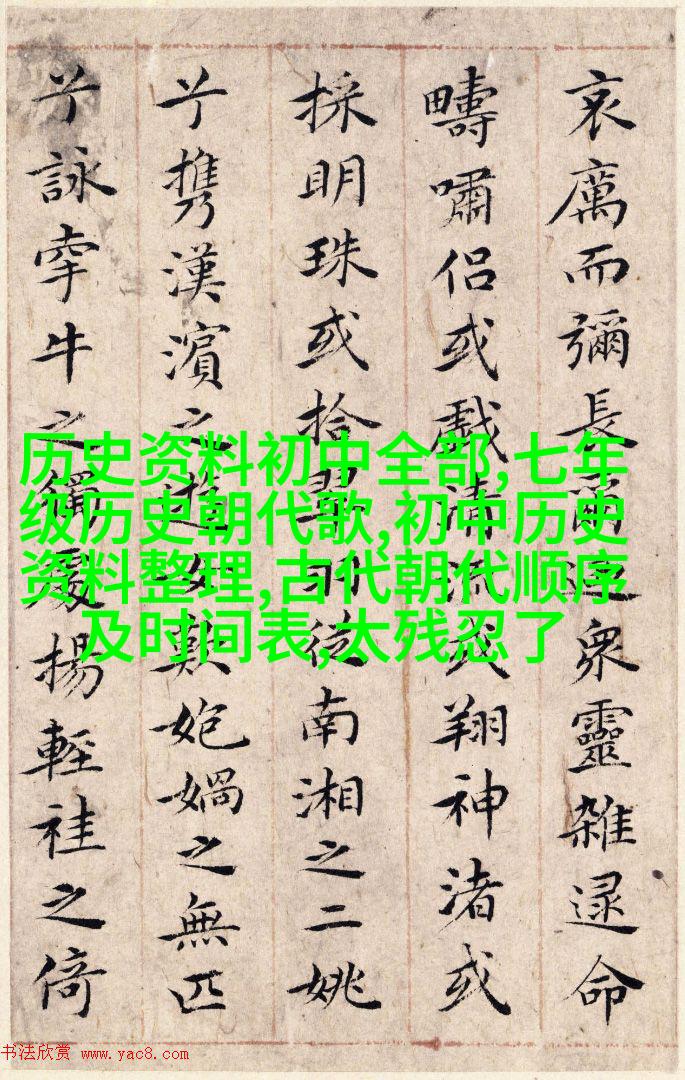 哀厲而彌長爾迺衆靈雜遝命
疇嘯侣或戲清流或翔神渚或
採明珠或拾翠羽從南湘之二姚
兮携漢濱之遊女歎媧之無匹
兮詠牽牛之獨處揚輕袿之倚
历史资料初中全部,七年
级历史朝代歌,初中历史
资料整理,古代朝代顺序
及时间表,太残忍了
书法欣赏 www.yac8.com